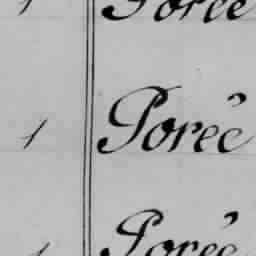 1 Porée
1 Porée
1 Porée